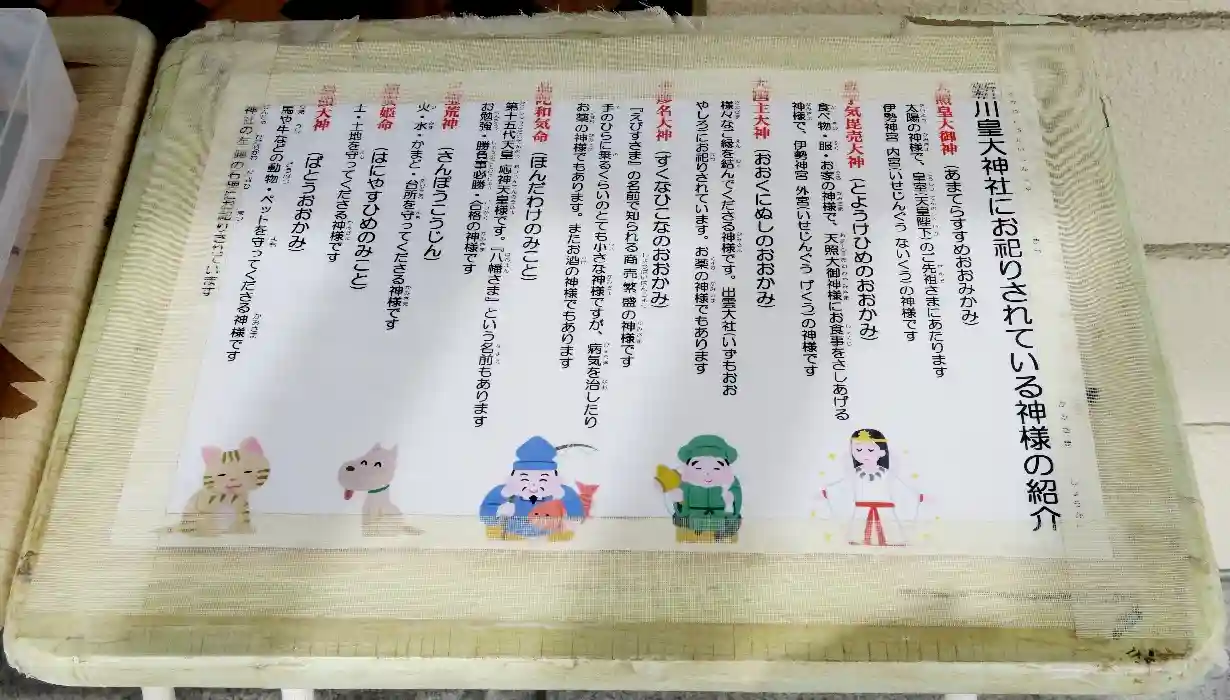 川皇大神社にお祀りされている神様の紹介
天照皇大御神（あまてらすすめおおみかみ）
太陽の神様で、皇室・天皇陛下のご先祖さまにあたります
伊勢神宮 内宮（いせじんぐう ないくう）の神様です
宇気毘売大神（とようけひめのおおかみ）
食べ物・服・お家の神様で、天照大御神様にお食事をさしあげる
神様で、伊勢神宮 外宮（いせじんぐう げくう）の神様です
大国主大神（おおくにぬしのおおかみ）
様々なご縁を結んでくださる神様です。出雲大社（いずもおお
やしろ）にお祀りされています。お薬の神様でもあります
名大神（すくなひこなのおおかみ）
『えびすさま』の名前で知られる商売繁盛の神様です
手のひらに乗るくらいのとても小さな神様ですが、病気を治したり
お薬の神様でもあります。またお酒の神様でもあります
陀和気命（ほんだわけのみこと）
第十五代天皇 応神天皇様です。『八幡さま』という名前もあります
お勉強・勝負事必勝・合格の神様です
荒神（さんぽうこうじん）
火・水・かまど・台所を守ってくださる神様です
姫命（はにやすひめのみこと）
土・土地を守ってくださる神様です
頭大神（ばとうおおかみ）
馬や牛などの動物・ペットを守ってくださる神様です
神社の